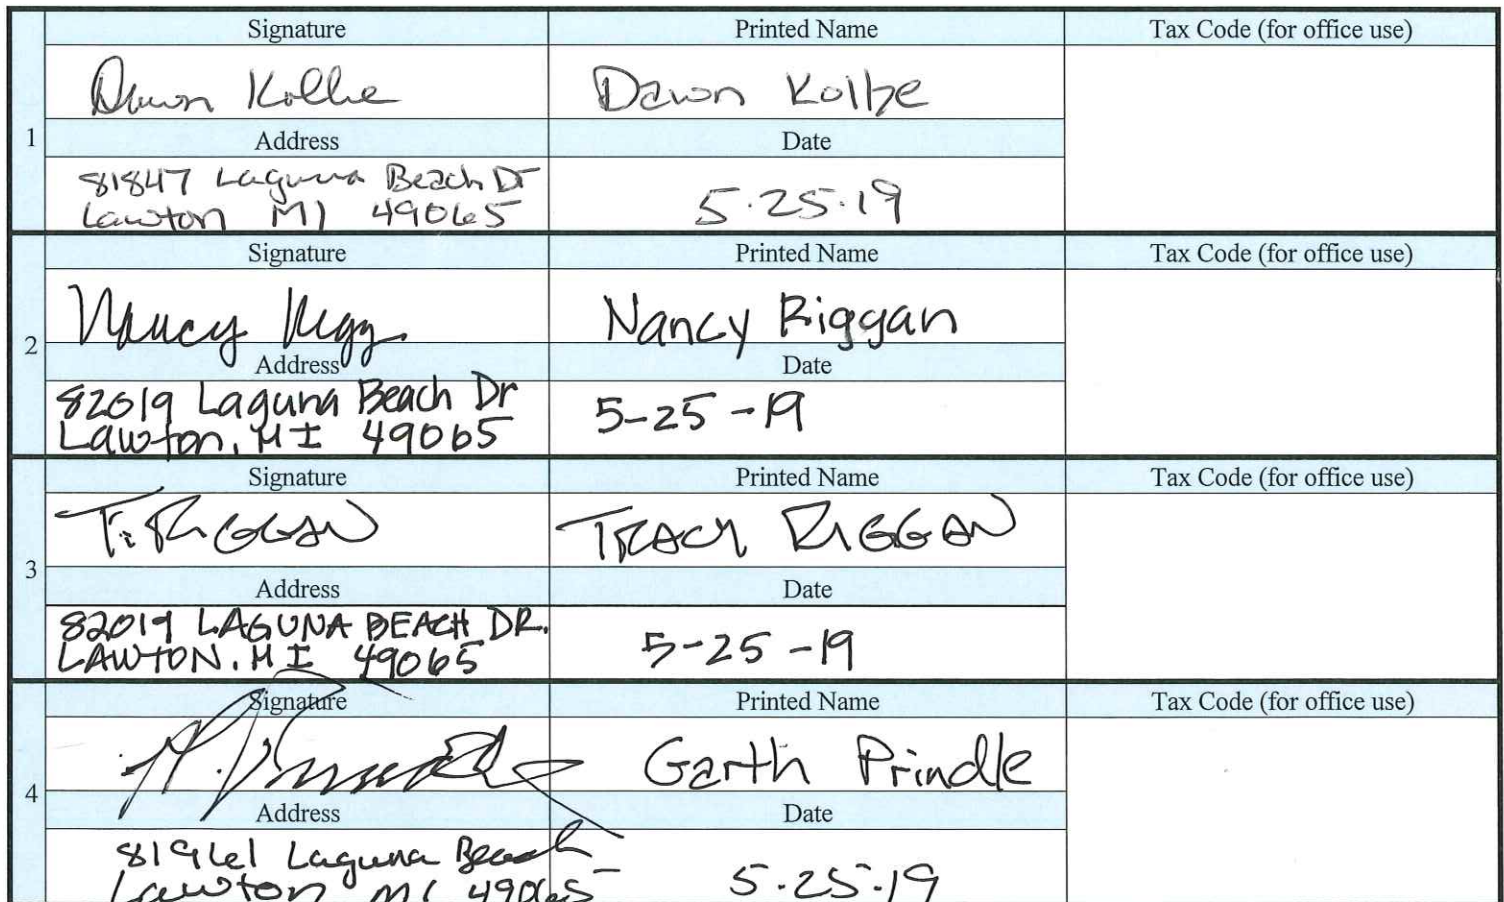 Signature Printed Name Tax Code (for office use)
Dawn Kolbe Dawn Kolbe
1
Address Date
81847 Laguna Beach Dr
Lawton MI 49065 5.25.19
Signature Printed Name Tax Code (for office use)
Nancy Nancy Riggan
2
Address Date
82019 Laguna Beach Dr
Lawton, MI 49065 5-25-19
Signature Printed Name Tax Code (for office use)
T. RIGGAN TRACY RIGGAN
3
Address Date
82019 LAGUNA BEACH DR.
LAWTON, MI 49065 5-25-19
Signature Printed Name Tax Code (for office use)
Garth Prindle
4
Address Date
81961 Laguna Beach
Lawton MI 49065 5.25.19